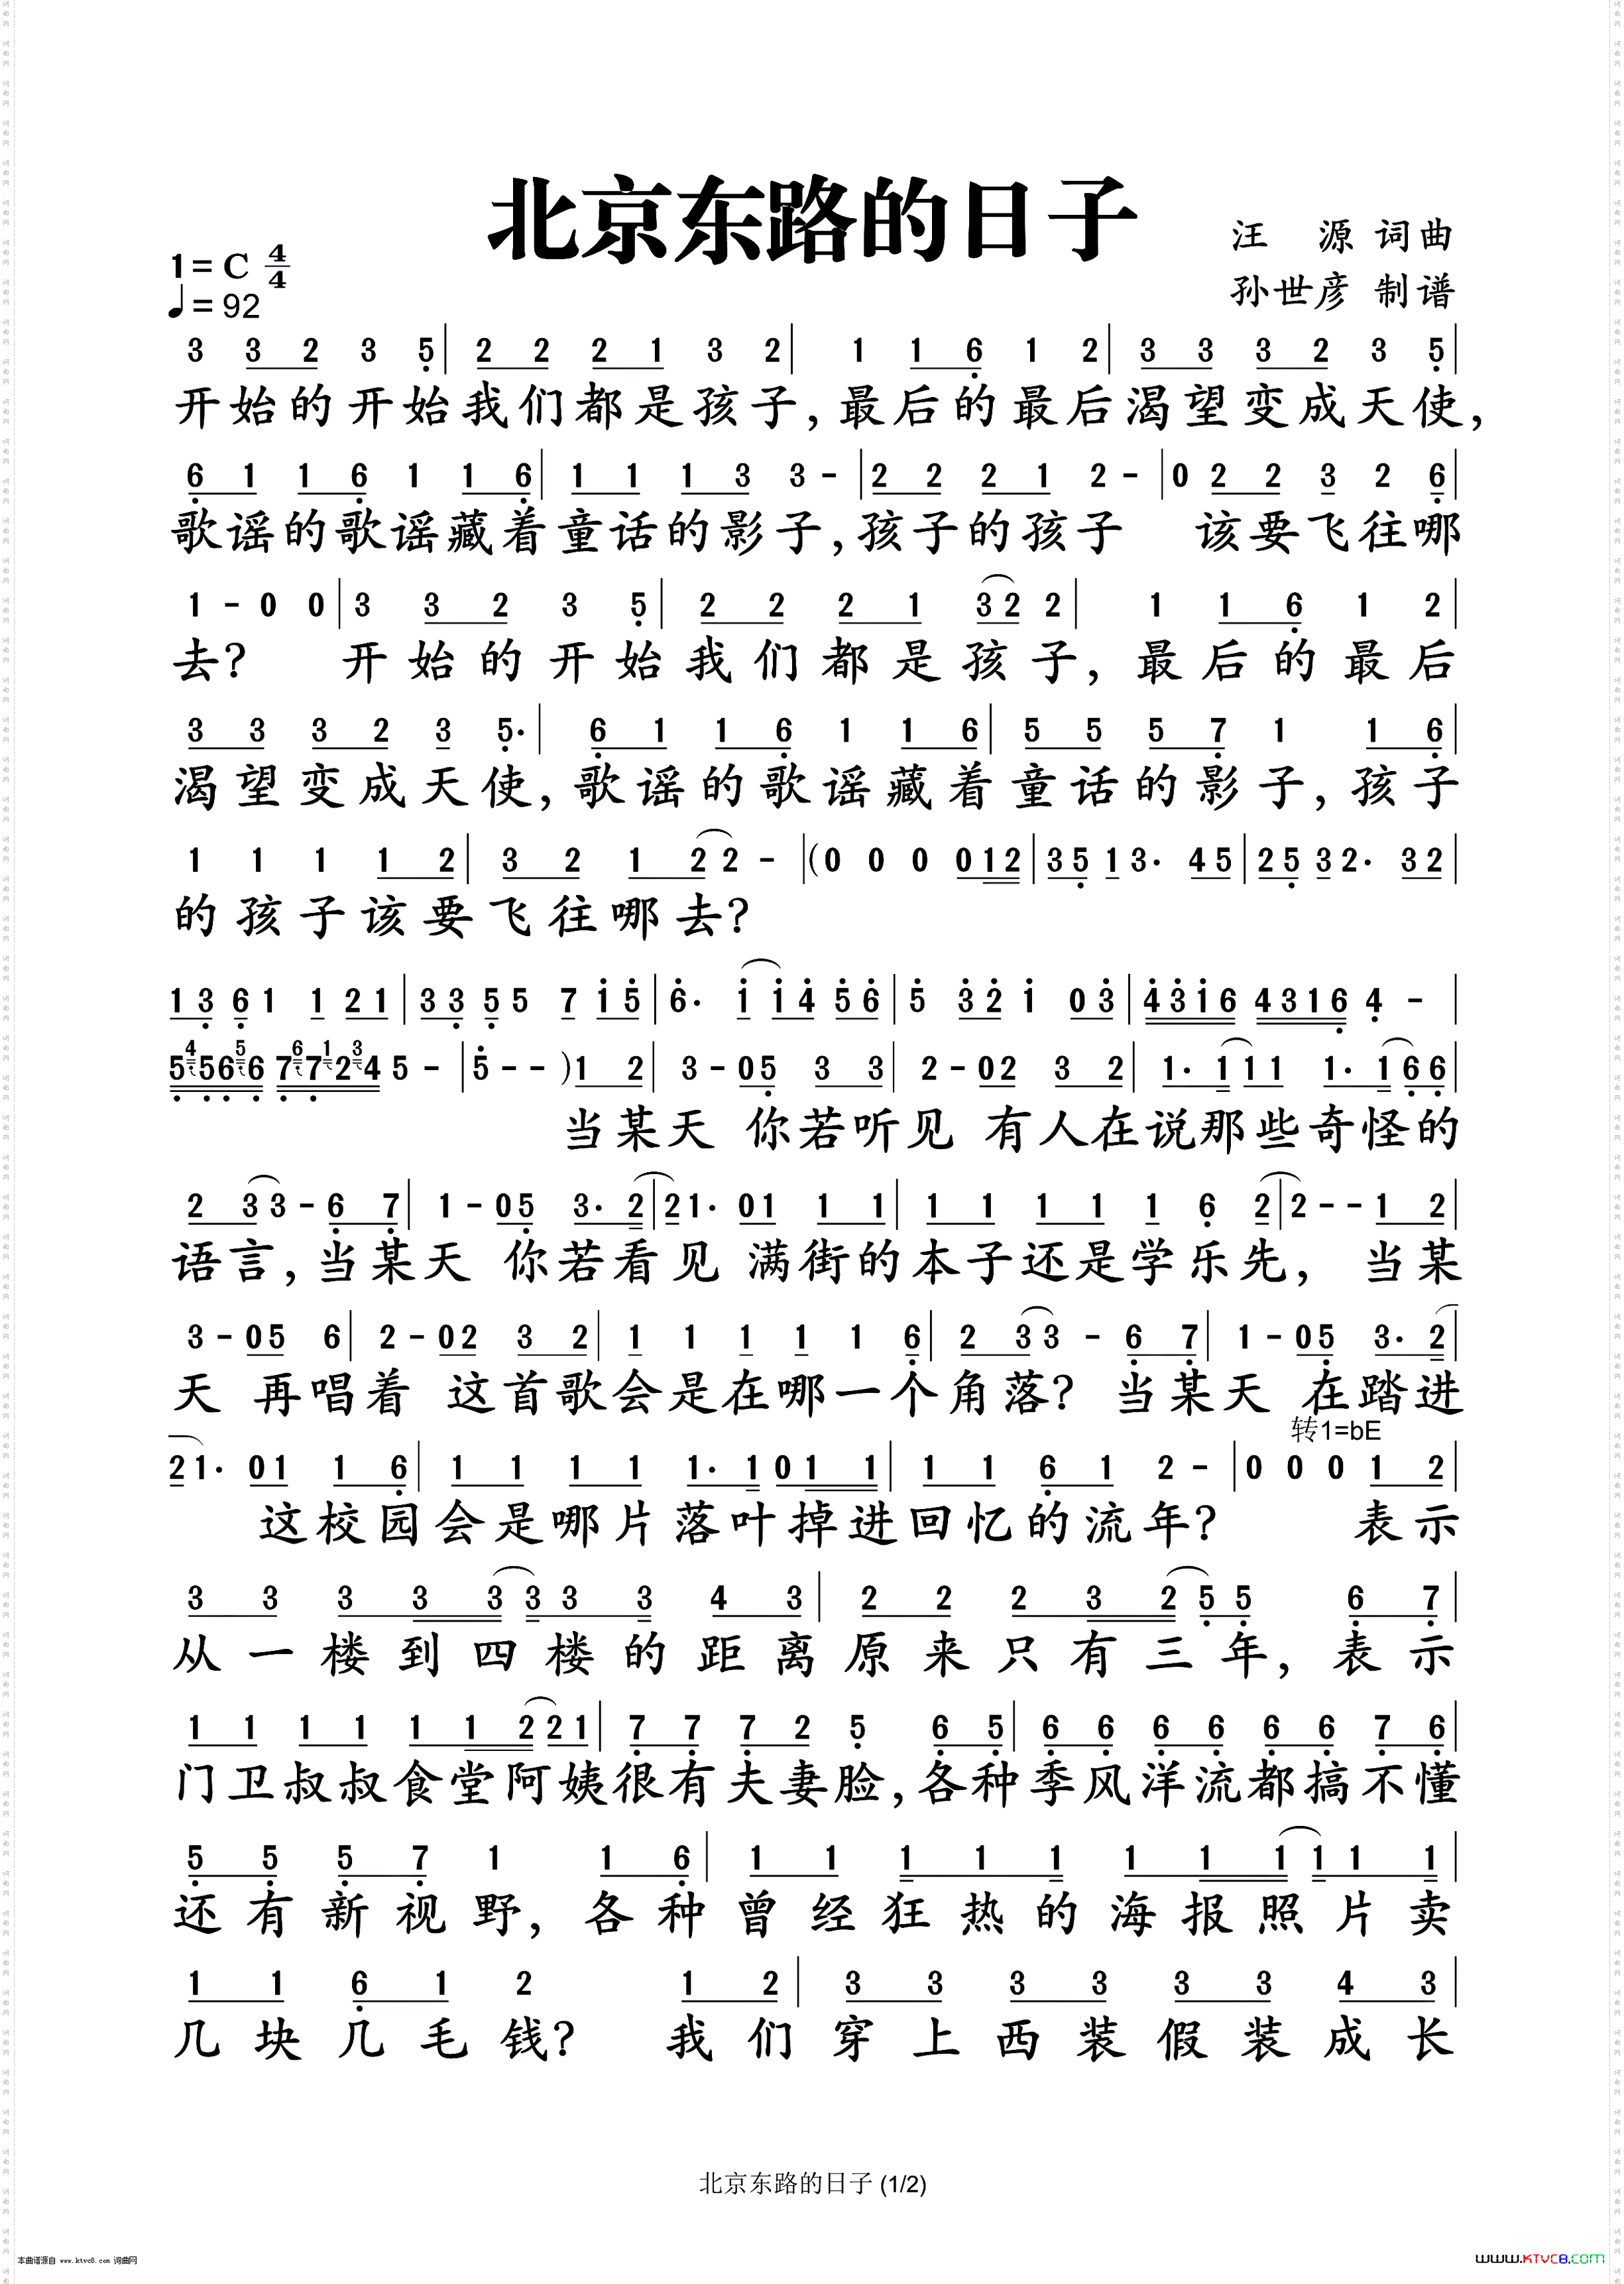 北京东路的日子
汪 源 词曲
孙世彦 制谱
1= C 4/4
♩= 92
3 3 2 3 5 | 2 2 2 1 3 2 | 1 1 6 1 2 | 3 3 3 2 3 5 |
开始的开始我们都是孩子,最后的最后渴望变成天使,
6 1 1 6 1 1 6 | 1 1 1 3 3 - | 2 2 2 1 2 - | 0 2 2 3 2 6 |
歌谣的歌谣藏着童话的影子,孩子的孩子 该要飞往哪
1 - 0 0 | 3 3 2 3 5 | 2 2 2 1 3 2 2 | 1 1 6 1 2 |
去? 开始的开始我们都是孩子,最后的最后
3 3 3 2 3 5· | 6 1 1 6 1 1 6 | 5 5 5 7 1 1 6 |
渴望变成天使,歌谣的歌谣藏着童话的影子,孩子
1 1 1 1 2 | 3 2 1 2 2 - | (0 0 0 0 1 2 | 3 5 1 3· 4 5 | 2 5 3 2· 3 2 |
的孩子该要飞往哪去?
1 3 6 1 1 2 1 | 3 3 5 5 7 1 5 | 6· 1 1 4 5 6 | 5 3 2 1 0 3 | 4 3 1 6 4 3 1 6 4 - |
4 5 6 1 3
5 5 6 6 7 7 2 4 5 - | 5 - - ) 1 2 | 3 - 0 5 3 3 | 2 - 0 2 3 2 | 1· 1 1 1 1· 1 6 6 |
当某天 你若听见 有人在说那些奇怪的
2 3 3 - 6 7 | 1 - 0 5 3· 2 | 2 1· 0 1 1 1 | 1 1 1 1 1 6 2 | 2 - - 1 2 |
语言,当某天 你若看见 满街的本子还是学乐先, 当某
3 - 0 5 6 | 2 - 0 2 3 2 | 1 1 1 1 1 6 | 2 3 3 - 6 7 | 1 - 0 5 3· 2 |
天 再唱着 这首歌会是在哪一个角落? 当某天 在踏进
转1=bE
2 1· 0 1 1 6 | 1 1 1 1 1· 1 0 1 1 | 1 1 6 1 2 - | 0 0 0 1 2 |
这校园会是哪片落叶掉进回忆的流年? 表示
3 3 3 3 3 3 3 3 4 3 | 2 2 2 3 2 5 5 6 7 |
从一楼到四楼的距离原来只有三年,表示
1 1 1 1 1 1 2 2 1 | 7 7 7 2 5 6 5 | 6 6 6 6 6 6 7 6 |
门卫叔叔食堂阿姨很有夫妻脸,各种季风洋流都搞不懂
5 5 5 7 1 1 6 | 1 1 1 1 1 1 1 1 1 1 1 |
还有新视野,各种曾经狂热的海报照片卖
1 1 6 1 2 1 2 | 3 3 3 3 3 3 4 3 |
几块几毛钱? 我们穿上西装假装成长
北京东路的日子 (1/2)
本曲谱源自 www.ktvc8.com 词曲网
www.KTVC8.com